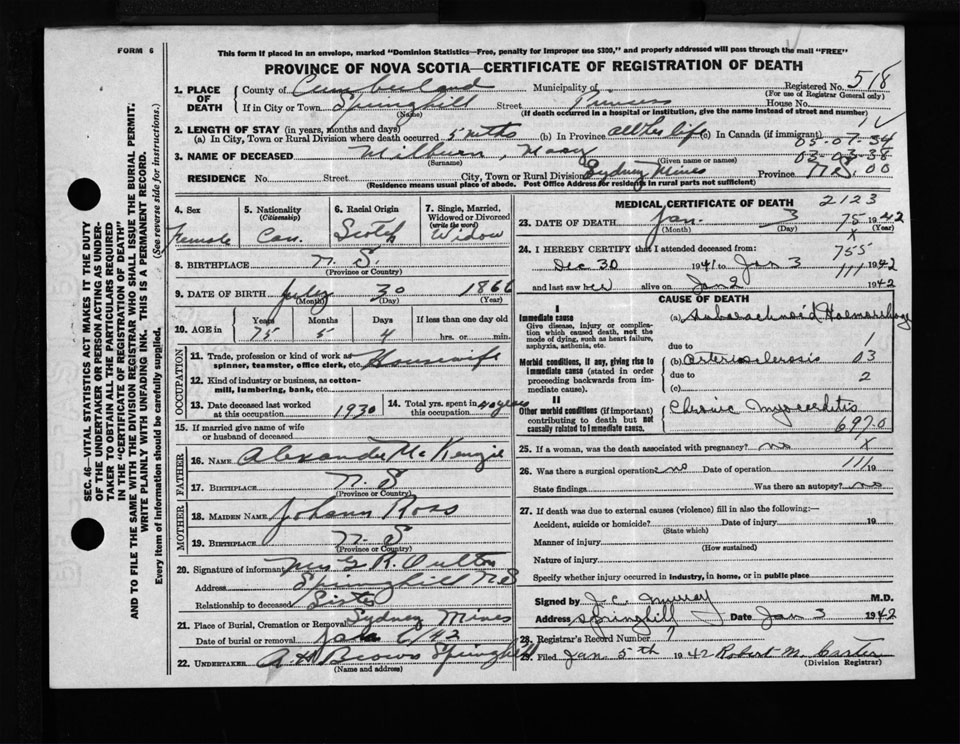 FORM 6
This form if placed in an envelope, marked "Dominion Statistics—Free, penalty for improper use $300," and properly addressed will pass through the mail "FREE"
PROVINCE OF NOVA SCOTIA—CERTIFICATE OF REGISTRATION OF DEATH
SEC. 46—VITAL STATISTICS ACT MAKES IT THE DUTY
OF THE UNDERTAKER OR PERSON ACTING AS UNDER-
TAKER TO OBTAIN ALL THE PARTICULARS REQUIRED
IN THE "CERTIFICATE OF REGISTRATION OF DEATH"
AND TO FILE THE SAME WITH THE DIVISION REGISTRAR WHO SHALL ISSUE THE BURIAL PERMIT.
WRITE PLAINLY WITH UNFADING INK. THIS IS A PERMANENT RECORD.
Every item of information should be carefully supplied. (See reverse side for instructions.)
1. PLACE OF DEATH County of Cumberland Municipality of Registered No. 518
(For use of Registrar General only)
If in City or Town Springhill Street Princess House No.
(Name) (If death occurred in a hospital or institution, give the name instead of street and number)
2. LENGTH OF STAY (in years, months and days)
(a) In City, Town or Rural Division where death occurred 5 mths (b) In Province all her life (c) In Canada (if immigrant)
03-07-34
3. NAME OF DECEASED Millburn, Mary 03-08-38
(Surname) (Given name or names)
RESIDENCE No. Street City, Town or Rural Division Sydney Mines Province N.S. 00
(Residence means usual place of abode. Post Office Address for residents in rural parts not sufficient)
4. Sex Female
5. Nationality (Citizenship) Can.
6. Racial Origin Scotch
7. Single, Married, Widowed or Divorced (write the word) Widow
8. BIRTHPLACE N. S.
(Province or Country)
9. DATE OF BIRTH July 30 1866
(Month) (Day) (Year)
10. AGE in Years Months Days If less than one day old
75 5 4 hrs. or min.
OCCUPATION
11. Trade, profession or kind of work as spinner, teamster, office clerk, etc. Housewife
12. Kind of industry or business, as cotton-mill, lumbering, bank, etc.
13. Date deceased last worked at this occupation 1930
14. Total yrs. spent in this occupation 40 years
15. If married give name of wife or husband of deceased
FATHER
16. NAME Alexander McKenzie
17. BIRTHPLACE N. S
(Province or Country)
MOTHER
18. MAIDEN NAME Johann Ross
19. BIRTHPLACE N. S
(Province or Country)
20. Signature of informant Mrs G. R. Oulton
Address Springhill N.S
Relationship to deceased Sister
21. Place of Burial, Cremation or Removal Sydney Mines
Date of burial or removal Jan 6/42
22. UNDERTAKER A H Brown Springhill
(Name and address)
MEDICAL CERTIFICATE OF DEATH 2123
23. DATE OF DEATH Jan. 3 75 1942
(Month) (Day) X
24. I HEREBY CERTIFY that I attended deceased from: 755
Dec 30 1941 to Jan 3 111 1942
and last saw her alive on Jan 2 1942
CAUSE OF DEATH
I
Immediate cause (a) Subarachnoid Haemorrhage
Give disease, injury or complication which caused death, not the mode of dying, such as heart failure, asphyxia, asthenia, etc.
due to 1
Morbid conditions, if any, giving rise to immediate cause (stated in order proceeding backwards from immediate cause). (b) arteriosclerosis 03
due to 2
(c)
II
Other morbid conditions (if important) contributing to death but not causally related to immediate cause. Chronic Myocarditis
697.0
25. If a woman, was the death associated with pregnancy? no X
26. Was there a surgical operation no Date of operation 111 19
State findings Was there an autopsy? no
27. If death was due to external causes (violence) fill in also the following:—
Accident, suicide or homicide? Date of injury 19
(State which)
Manner of injury
(How sustained)
Nature of injury
Specify whether injury occurred in industry, in home, or in public place
Signed by J. C. Murray M.D.
Address Springhill Date Jan 3 1942
28. Registrar's Record Number 7
29. Filed Jan. 5th 1942 Robert M. Carter
(Division Registrar)